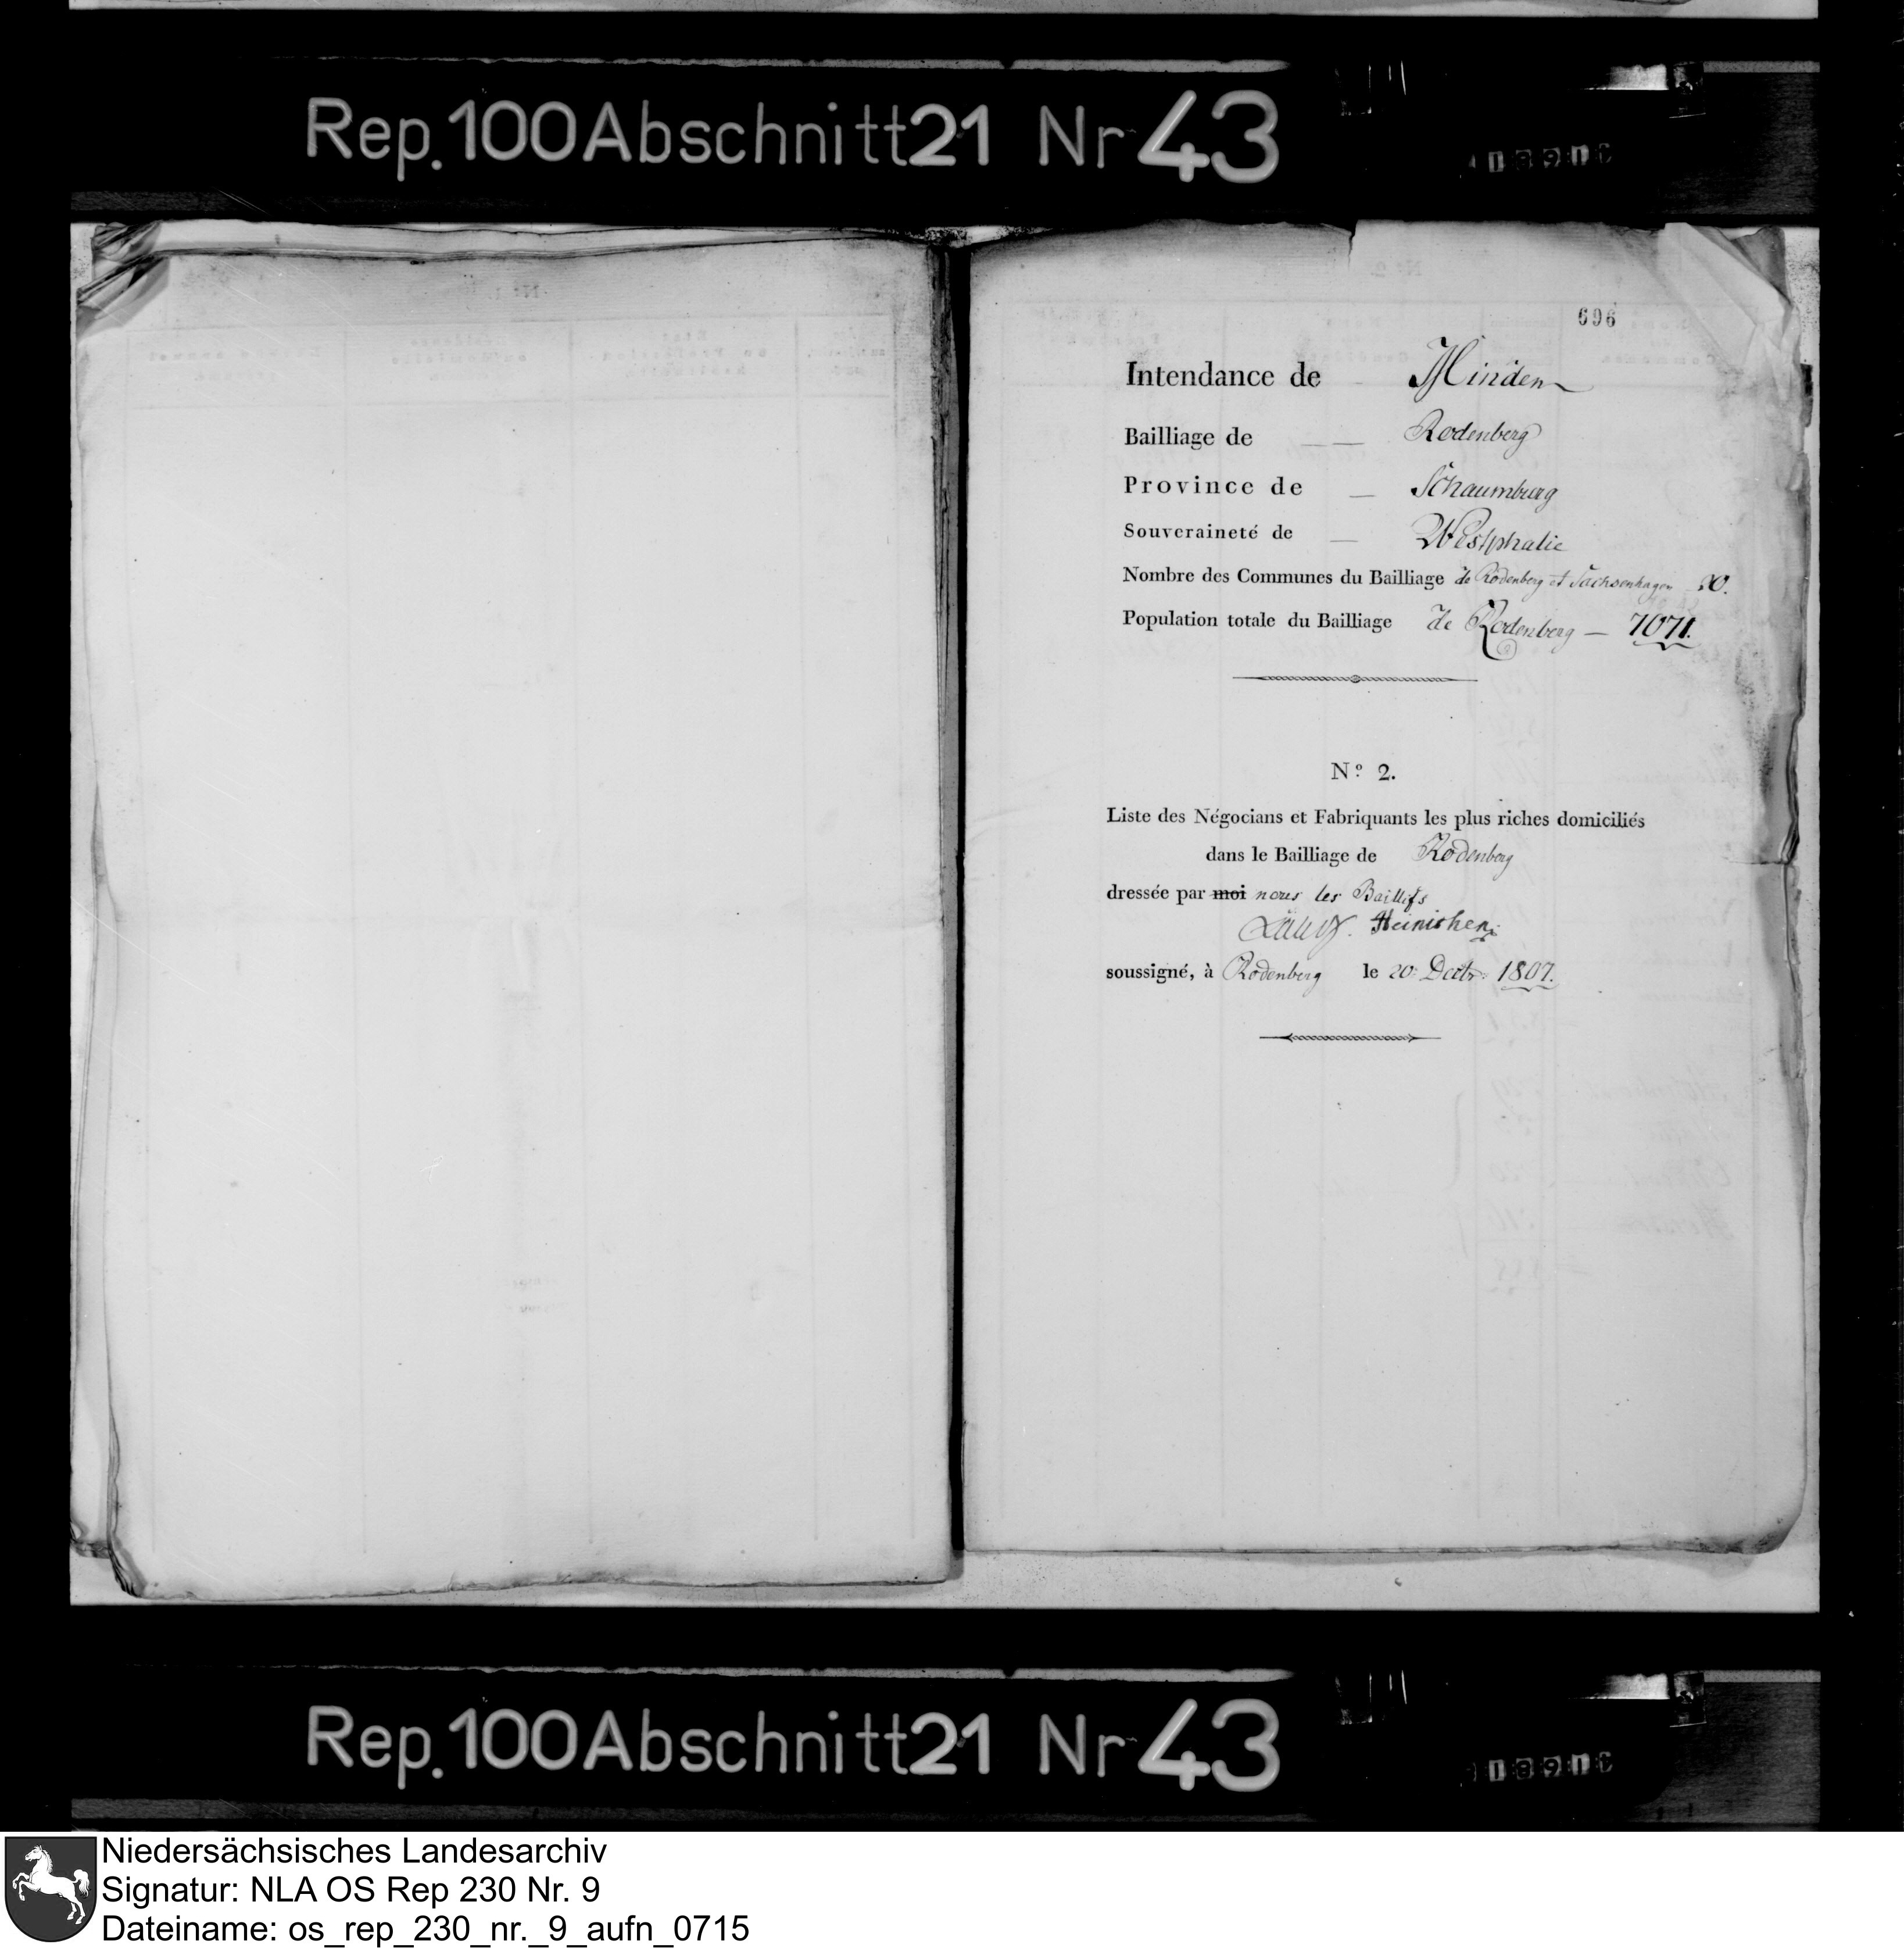 Rep. 100 Abschnitt 21 Nr 43
696
Intendance de Minden
Bailliage de — — Rodenberg
Province de — Schaumburg
Souveraineté de — Westphalie
Nombre des Communes du Bailliage de Rodenberg et Sachsenhagen 20.
Population totale du Bailliage de Rodenberg — 7071.
Nº 2.
Liste des Négocians et Fabriquants les plus riches domiciliés
dans le Bailliage de Rodenberg
dressée par moi nous les Baillifs
Heinichen
soussigné, à Rodenberg le 20 Decbr: 1807.
Rep. 100 Abschnitt 21 Nr 43
Niedersächsisches Landesarchiv
Signatur: NLA OS Rep 230 Nr. 9
Dateiname: os_rep_230_nr._9_aufn_0715